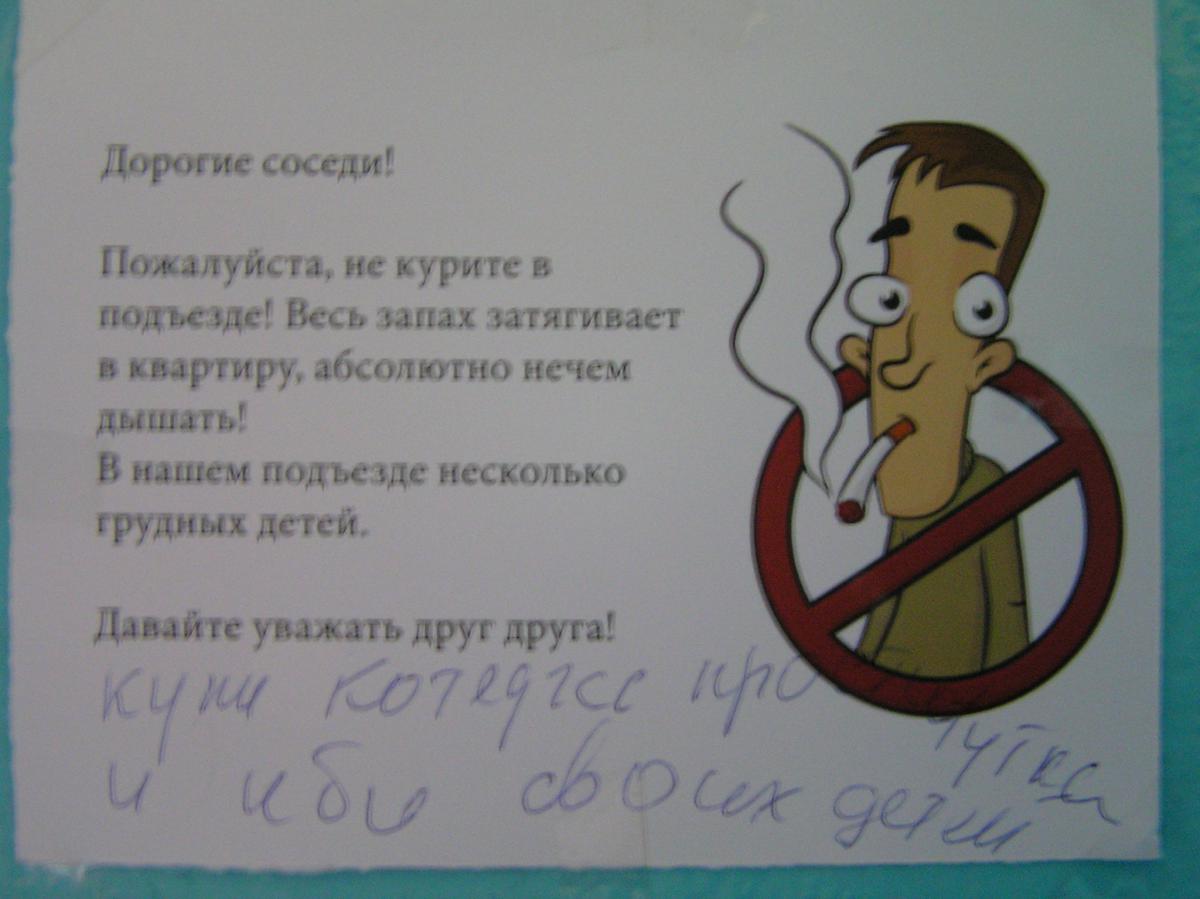 Дорогие соседи!
Пожалуйста, не курите в
подъезде! Весь запах затягивает
в квартиру, абсолютно нечем
дышать!
В нашем подъезде несколько
грудных детей.
Давайте уважать друг друга!
купи котедгсс
и иби своих детей